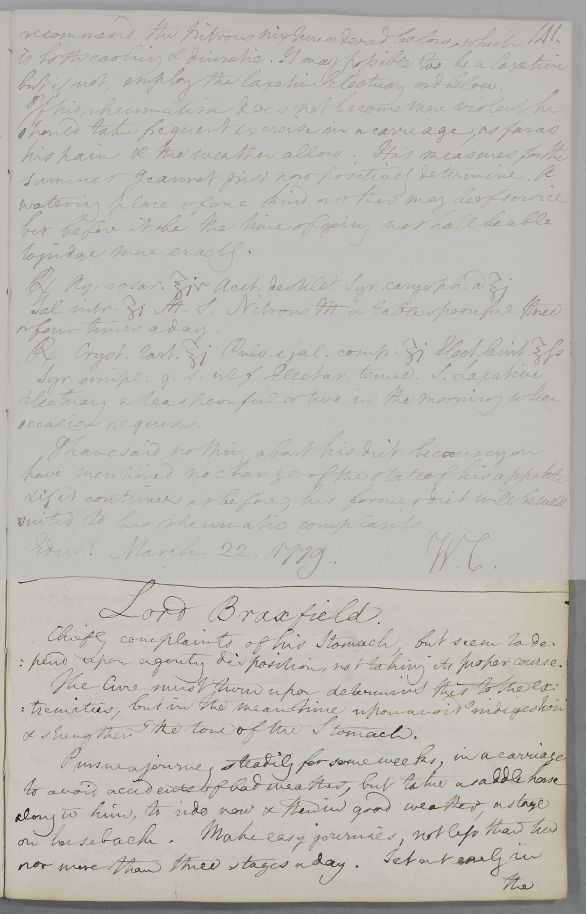 141.
recommend the Nitrous mixture ordered below, which
is both cooling & diuretic. It may possible too be a laxative
but if not, employ the laxative Electuary ord below.
If his rheumatism does not become more violent he
should take frequent exercise in a carriage, as far as
his pain & the weather allow. His measures for the
summer I cannot just now positively determine. A
watering place of one kind or other may be of service
but before it be the time of going we shall be able
to judge more exactly.
℞ Aq. rosar. ℥iv Acet. destillt. Syr. caryoph. a ℥j
Sal. nitr. ʒi M. S. Nitrous M. a tablespoonful three
or four times a day.
℞ Cryst. tart. ℥j Pulv. e jal. comp. ʒj Elect. lenit. ℥ſs.
Syr. simpl. q. s. ut f. Electar. tenue. S. Laxative
Electuary a teaspoonful or two in the morning when
occasion requires.
I have said nothing about his diet because you
have mentioned no change of the state of his appetite
& if it continues as before, his former diet will be well
suited to his rheumatic complaints
Edinr. March 22. 1779. W. C.
Lord Braxfield.
Chiefly complaints of his Stomach, but seem to de-
:pend upon a gouty disposition, not taking its proper course.
The Cure must turn upon determining this to the Ex-
:tremities, but in the meantime upon avoidg indigestion
& strengtheng the tone of the Stomach.
Pursue a journey steadily for some weeks, in a carriage
to avoid accidents of bad weather, but take a saddle horse
along wt him, to ride now & then in good weather, a stage
on horseback. Make easy journies, not less than two
nor more than three stages a day. Set out early in
the